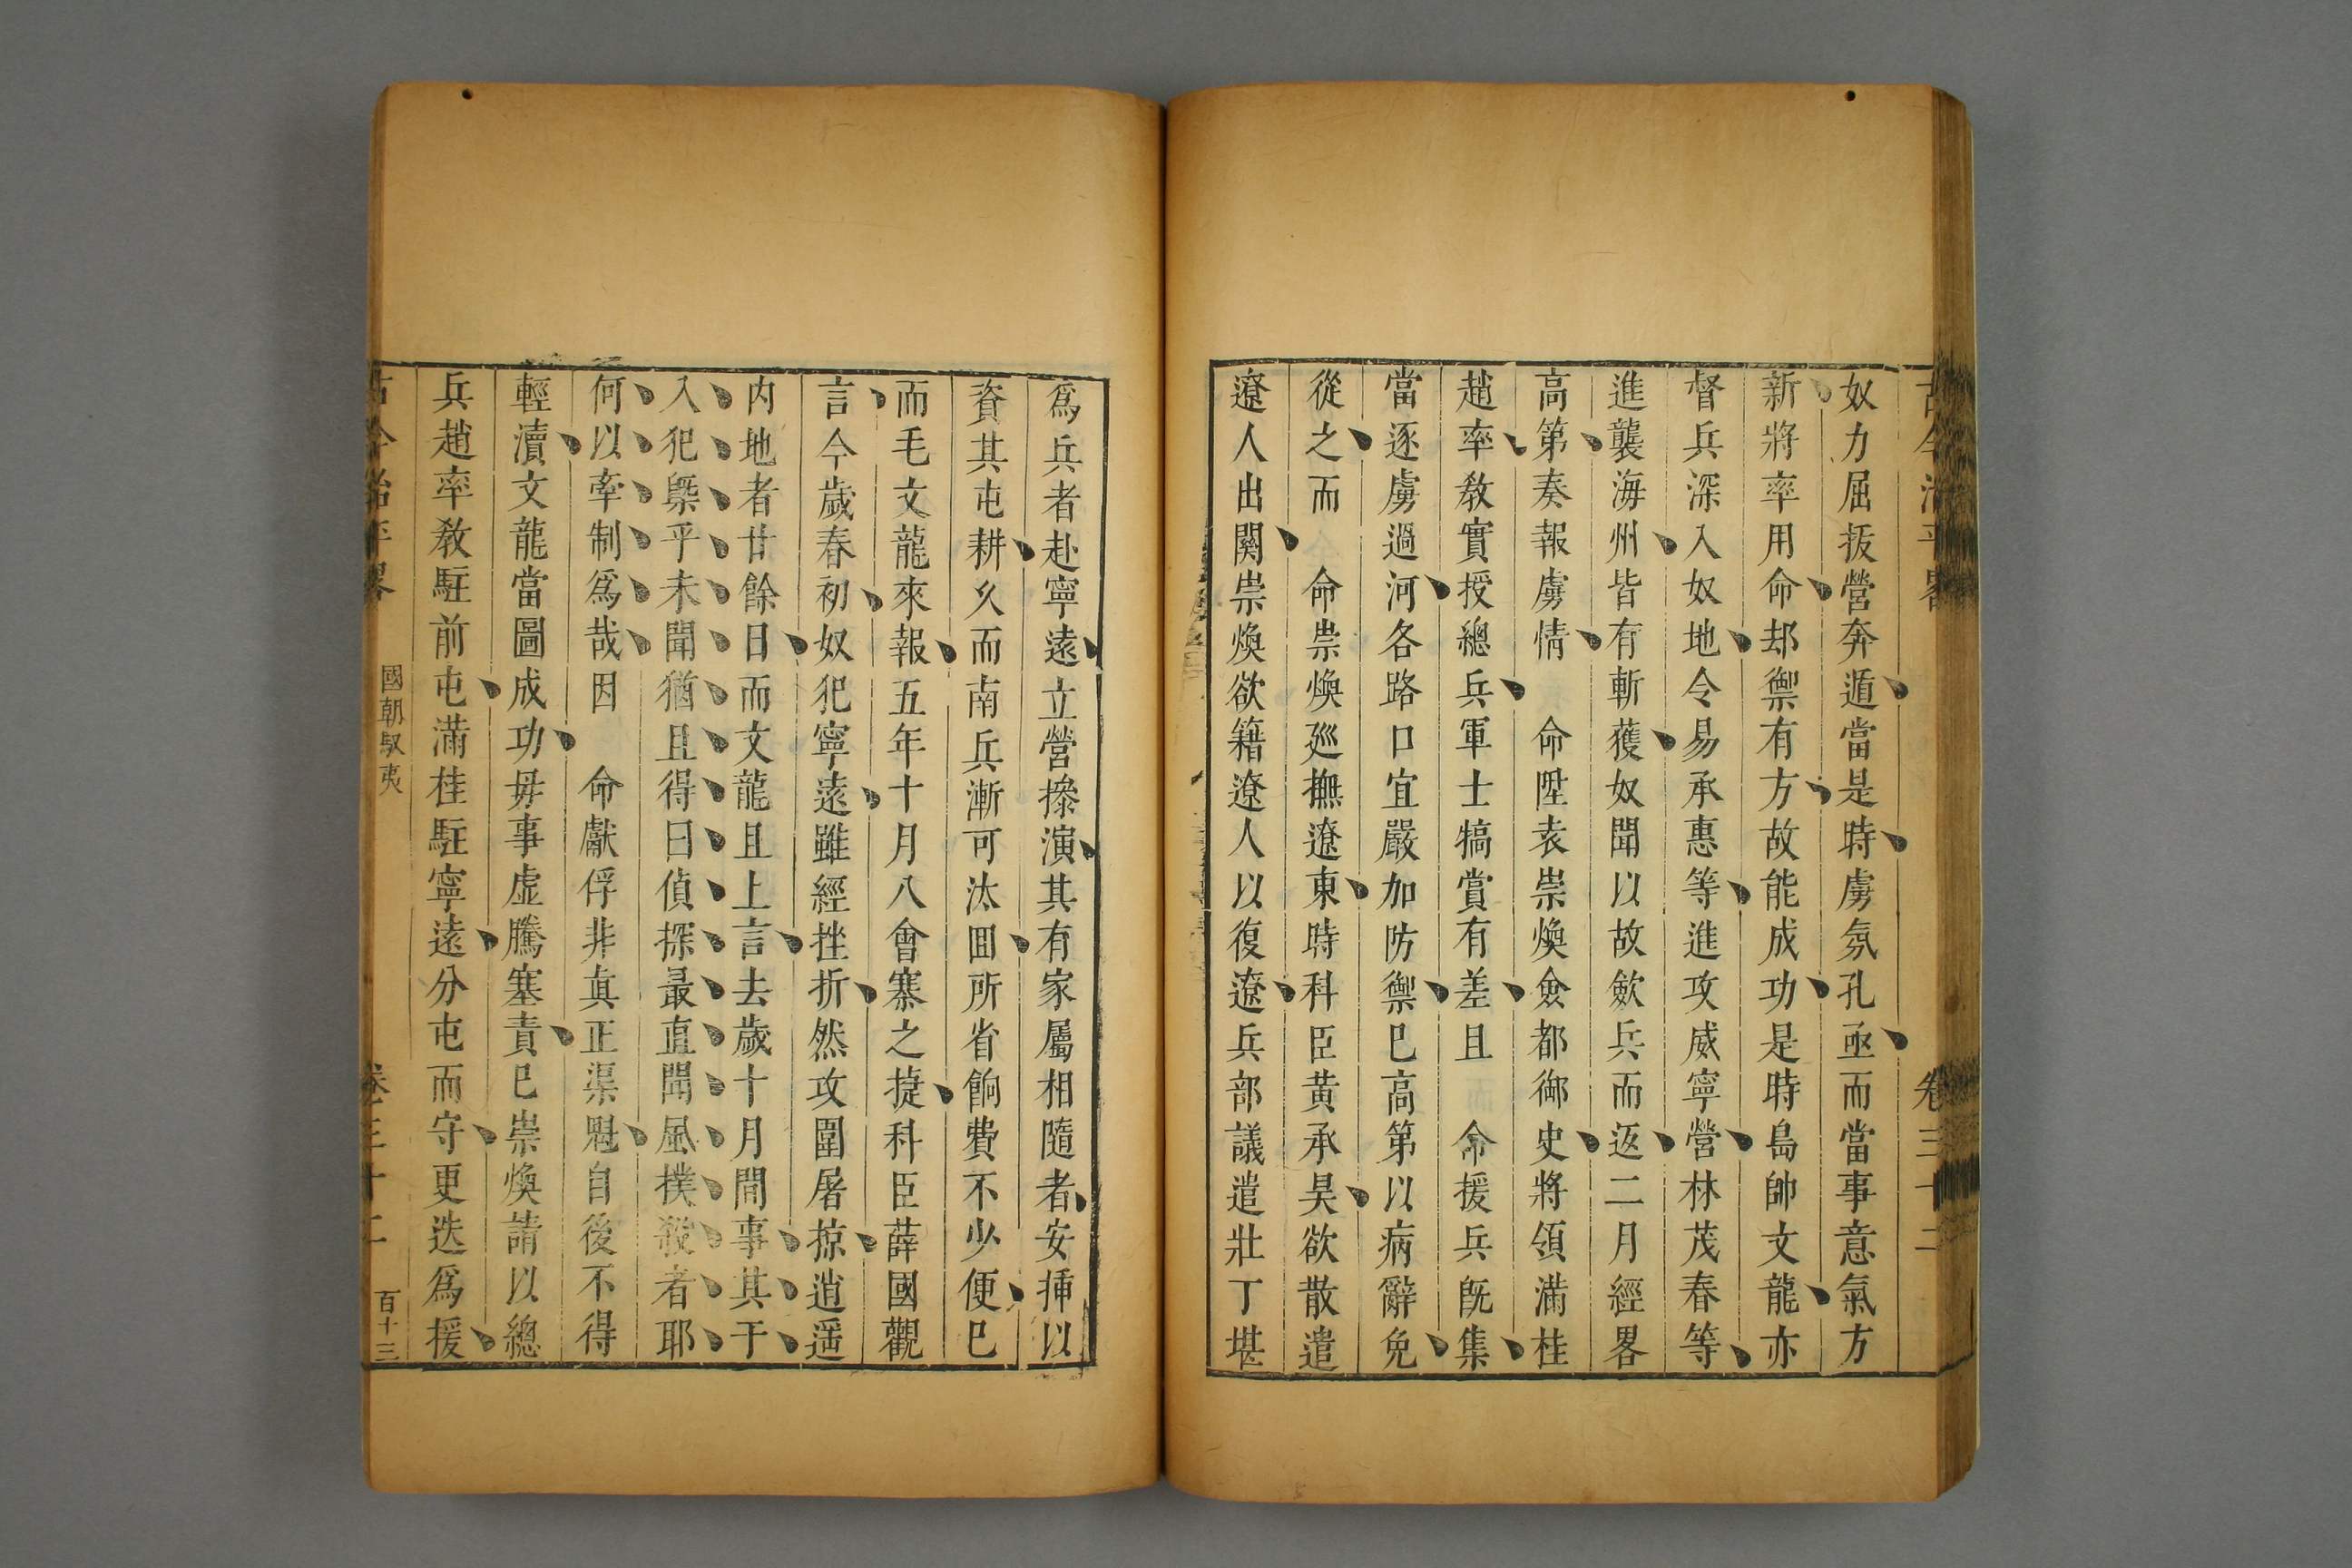 古今治平畧 卷三十二
奴力屈拔營奔遁當是時虜氛孔亟而當事意氣方
新將率用命却禦有方故能成功是時島帥文龍亦
督兵深入奴地令易承惠等進攻威寧營林茂春等
進襲海州皆有斬獲奴聞以故歛兵而返二月經畧
高第奏報虜情　命陞袁崇煥僉都御史將領滿桂
趙率教實授總兵軍士犒賞有差且　命援兵既集
當逐虜過河各路口宜嚴加防禦巳高第以病辭免
從之而　命崇煥廵撫遼東時科臣黃承昊欲散遣
遼人出關崇煥欲籍遼人以復遼兵部議遣壯丁堪
爲兵者赴寧遠立營操演其有家屬相隨者安揷以
資其屯耕久而南兵漸可汰囬所省餉費不少便巳
而毛文龍來報五年十月八會寨之捷科臣薛國觀
言今歲春初奴犯寧遠雖經挫折然攻圍屠掠逍遥
内地者廿餘日而文龍且上言去歲十月間事其于
入犯槩乎未聞猶且得曰偵探最直聞風撲殺者耶
何以牽制爲哉因　命獻俘非眞正渠魁自後不得
輕瀆文龍當圖成功毋事虛騰塞責巳崇煥請以總
兵趙率教駐前屯滿桂駐寧遠分屯而守更迭爲援
古今治平畧 國朝馭夷 卷三十二 百十三